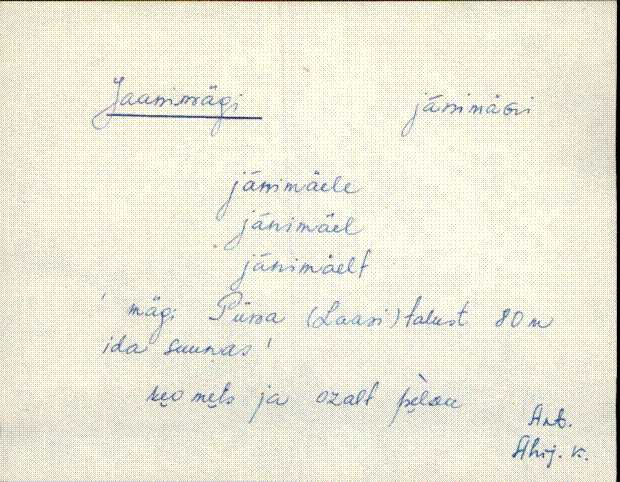 Jaanimägi jänimäGi
jänimäele
jänimäel
jänimäelt
' mägi (Laari) talust 80 m
ida suunas '
mets ja ozalt
Ant.
Ahij. k.